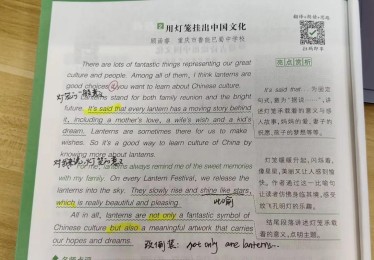 用灯笼挂出中国文化
There are lots of fantastic things representing our great
culture and people. Among all of them, I think lanterns are
good choices you want to learn about Chinese culture.
terns stand for both family reunion and the bright
future. It's said that every lantern has a moving story behind
it, including a mother's love, a wife's wish and a kid's
dream. Lanterns are sometimes there for us to make
wishes. So it's a good way to learn culture of China by
knowing more about lanterns.
lanterns always remind me of the sweet memories
with my family. On every Lantern Festival, we release the
lanterns into the sky. They slowly rise and shine like stars,
which is really beautiful and pleasing.
比喻
All in all, lanterns are not only a fantastic symbol of
Chinese culture but also a meaningful artwork that carries
our hopes and dreams.
not only are lanterns...
亮点赏析
It's said that...为固定
句式,意为"据说……",讲
述灯笼承载着的意义与感
人故事,妈妈的爱、妻子的
祈愿、孩子的梦想等等。
灯笼缓缓升起,闪烁着,
像星星,美丽又让人感到愉
快。作者通过这一比喻句
让读者仿佛身临其境,感受
放飞孔明灯的乐趣。
结尾段落讲述灯笼承载
着的意义,点明主题。